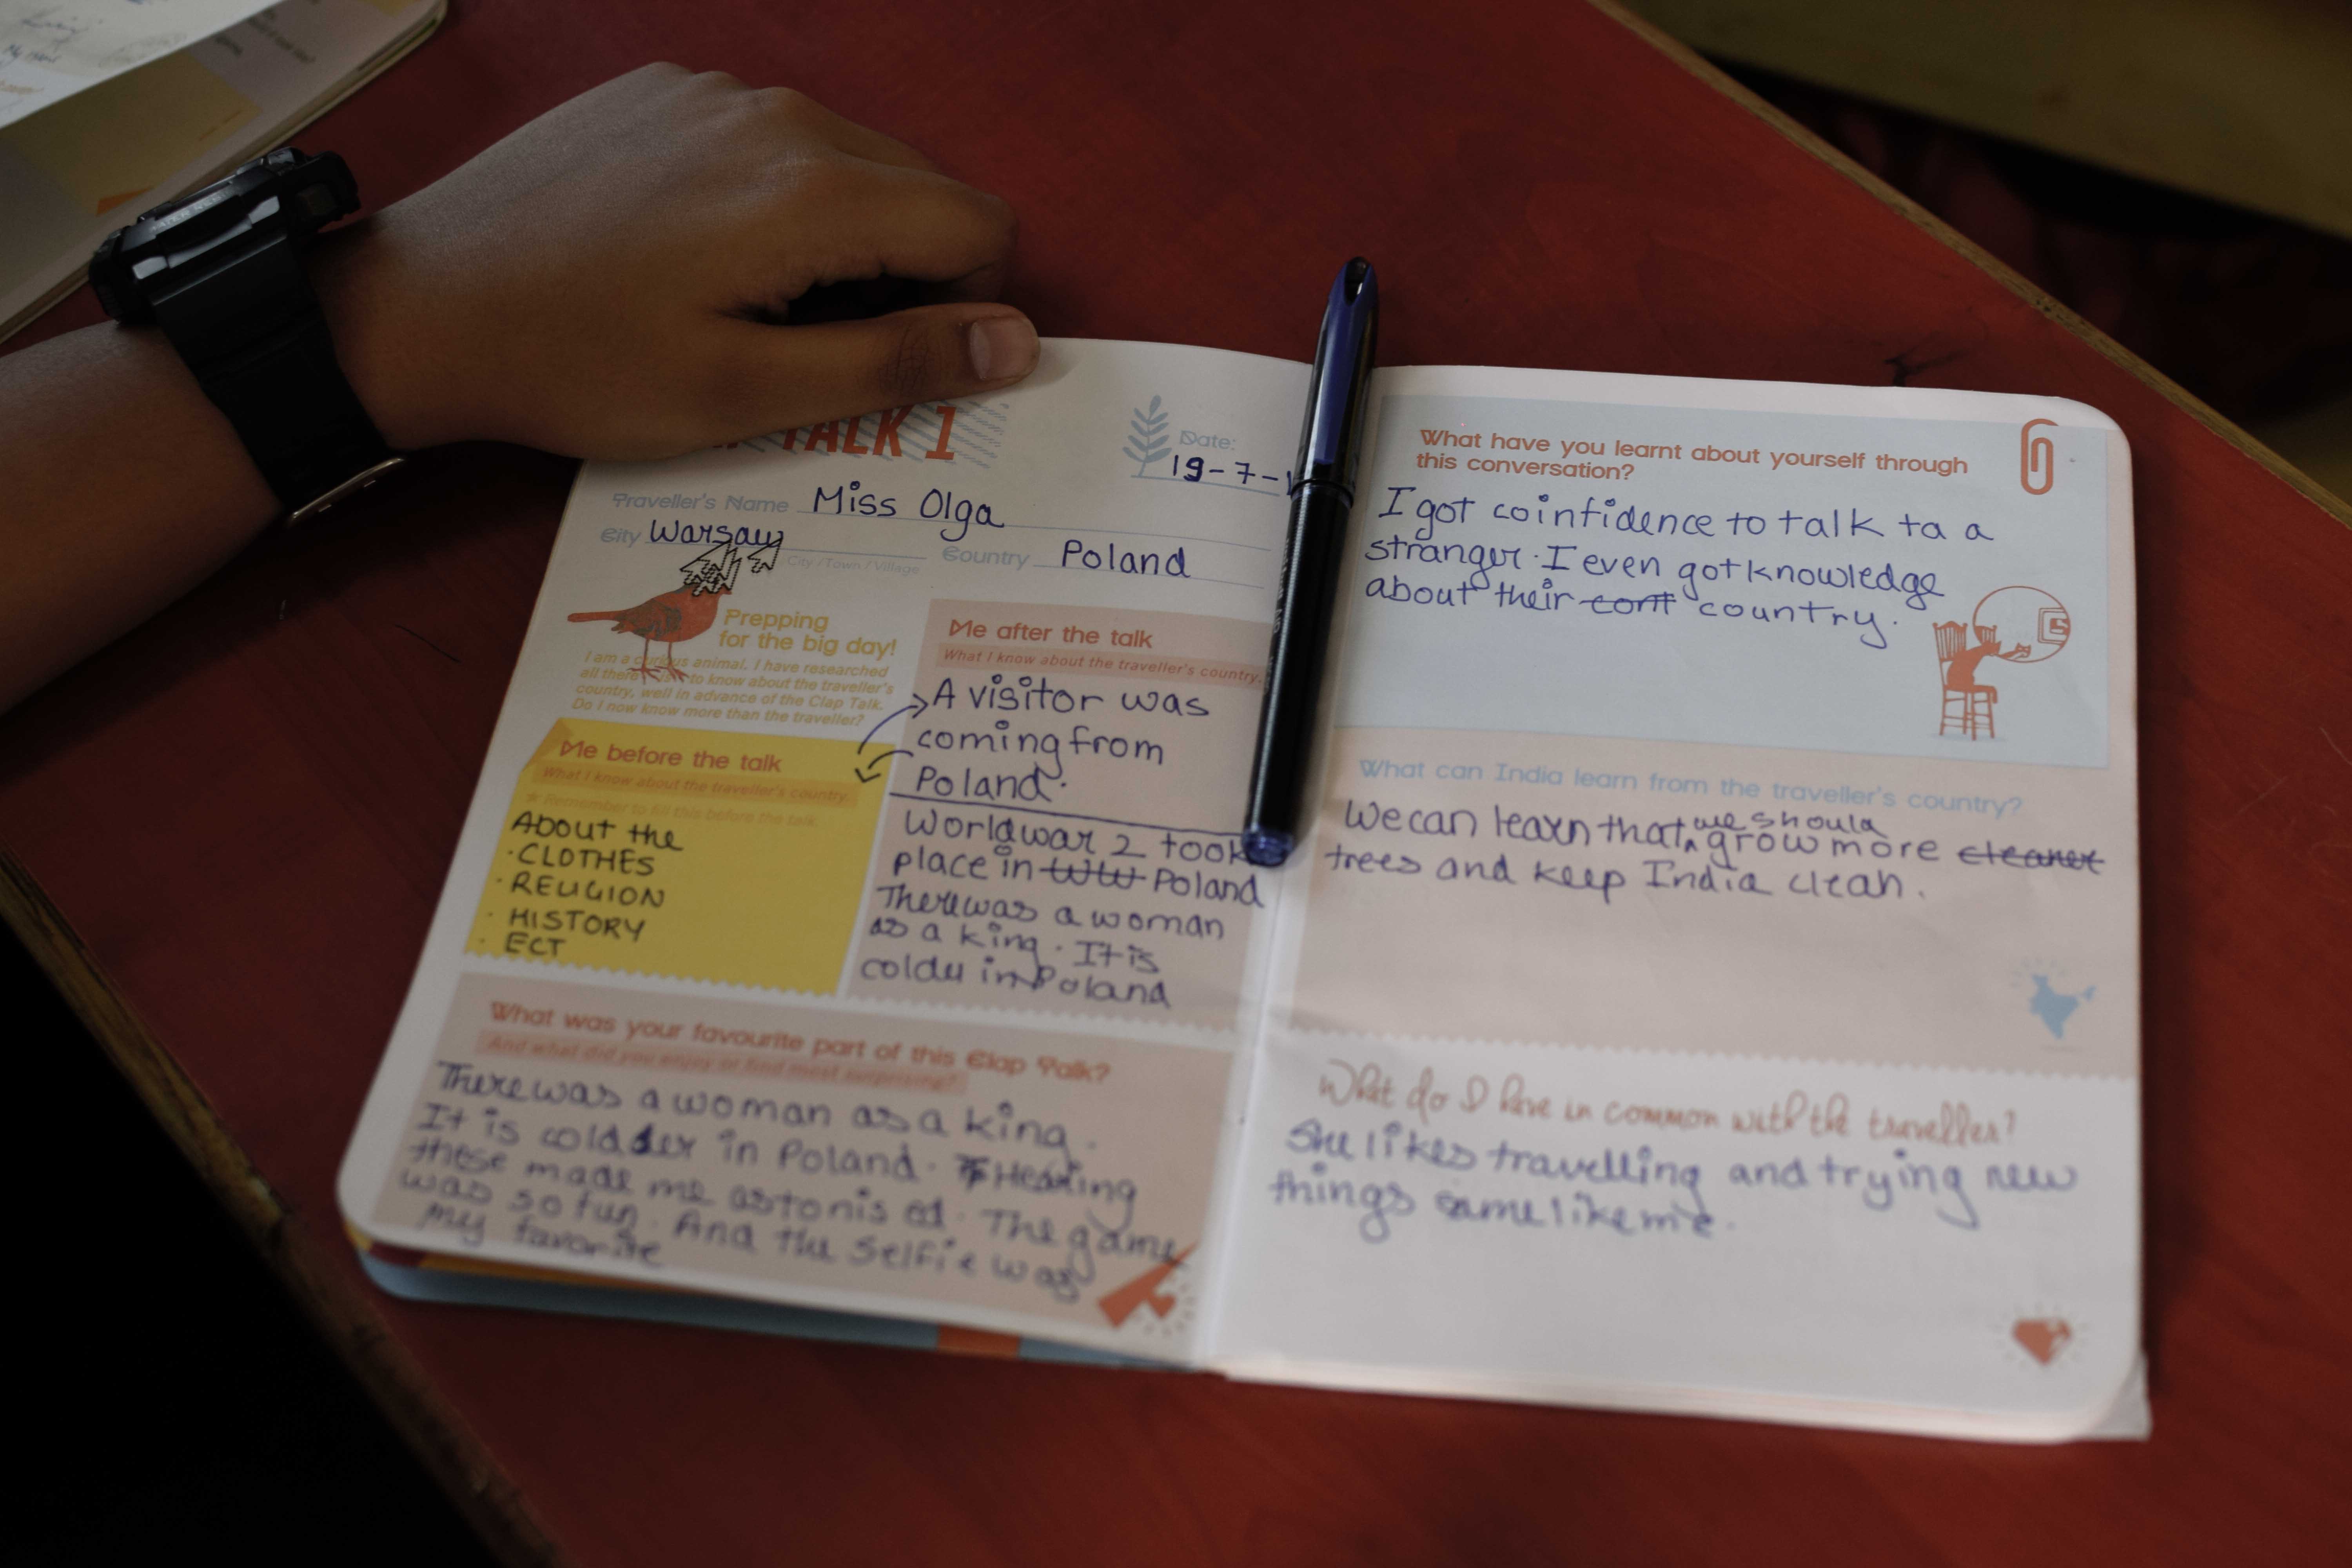 TALK 1
Date:
19-7-1
Traveller's Name Miss Olga
City Warsaw
City / Town / Village
Country Poland
Prepping
for the big day!
I am a curious animal. I have researched
all there is to know about the traveller's
country, well in advance of the Clap Talk.
Do I now know more than the traveller?
Me before the talk
What I know about the traveller's country.
* Remember to fill this before the talk.
ABOUT the
· CLOTHES
· RELIGION
· HISTORY
· ECT
Me after the talk
What I know about the traveller's country.
A visitor was
coming from
Poland.
World war 2 took
place in WW Poland
There was a woman
as a king. It is
in Poland
What was your favourite part of this Clap Talk?
And what did you enjoy or find most surprising?
There was a woman as a king.
It is in Poland. Hearing
these made me astonis ed. The game
was so fun. And the selfie was
my favorite
What have you learnt about yourself through
this conversation?
I got coinfidence to talk ta a
stranger. I even got knowledge
about their cont country.
What can India learn from the traveller's country?
We can learn that we should grow more cleaner
trees and keep India clean.
What do I have in common with the traveller?
She likes travelling and trying new
things same like me.